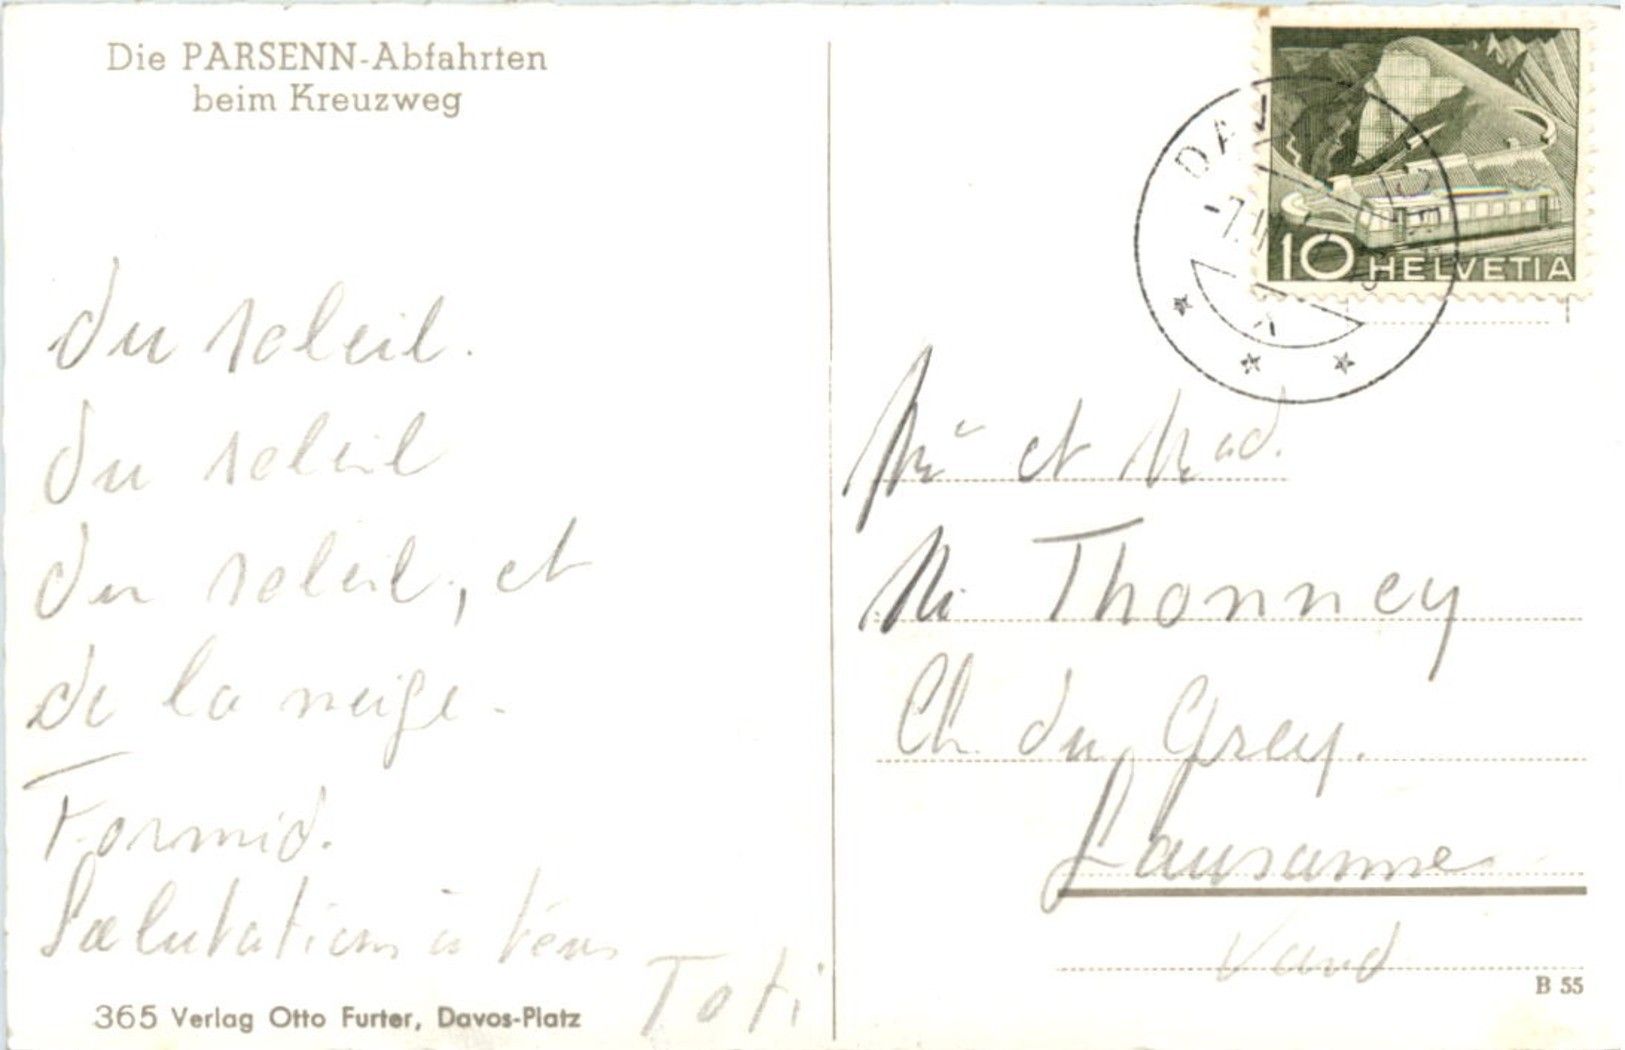 Die PARSENN-Abfahrten
beim Kreuzweg
du soleil.
du soleil
du soleil, et
de la neige.
Formid.
Salutations à
Toti
365 Verlag Otto Furter, Davos-Platz
10 HELVETIA
-7.
et Mad.
Thonney
Ch. du Grey.
Lausanne
Vaud
B 55